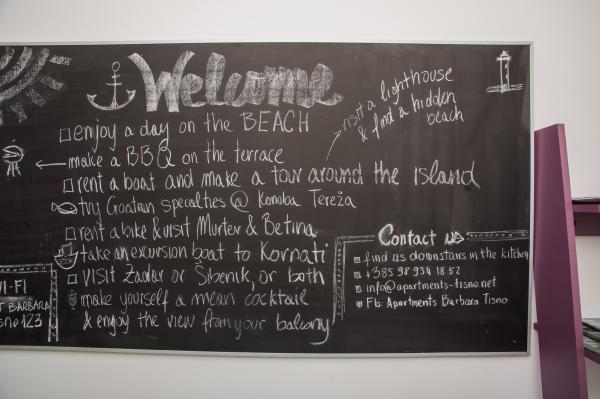 Welcome
enjoy a day on the BEACH
make a BBQ on the terrace
rent a boat and make a tour around the island
visit a lighthouse
& find a hidden
beach
try Croatian specialties @ Konoba Tereža
rent a bike & visit Murter & Betina
take an excursion boat to Kornati
VISIT Zadar or Šibenik, or both
make yourself a mean cocktail
& enjoy the view from your balcony
Contact us
find us downstairs in the kitchen
+385 98 934 18 52
info@apartments-tisno.net
Fb: Apartments Barbara Tisno
WI-FI
BARBARA
123